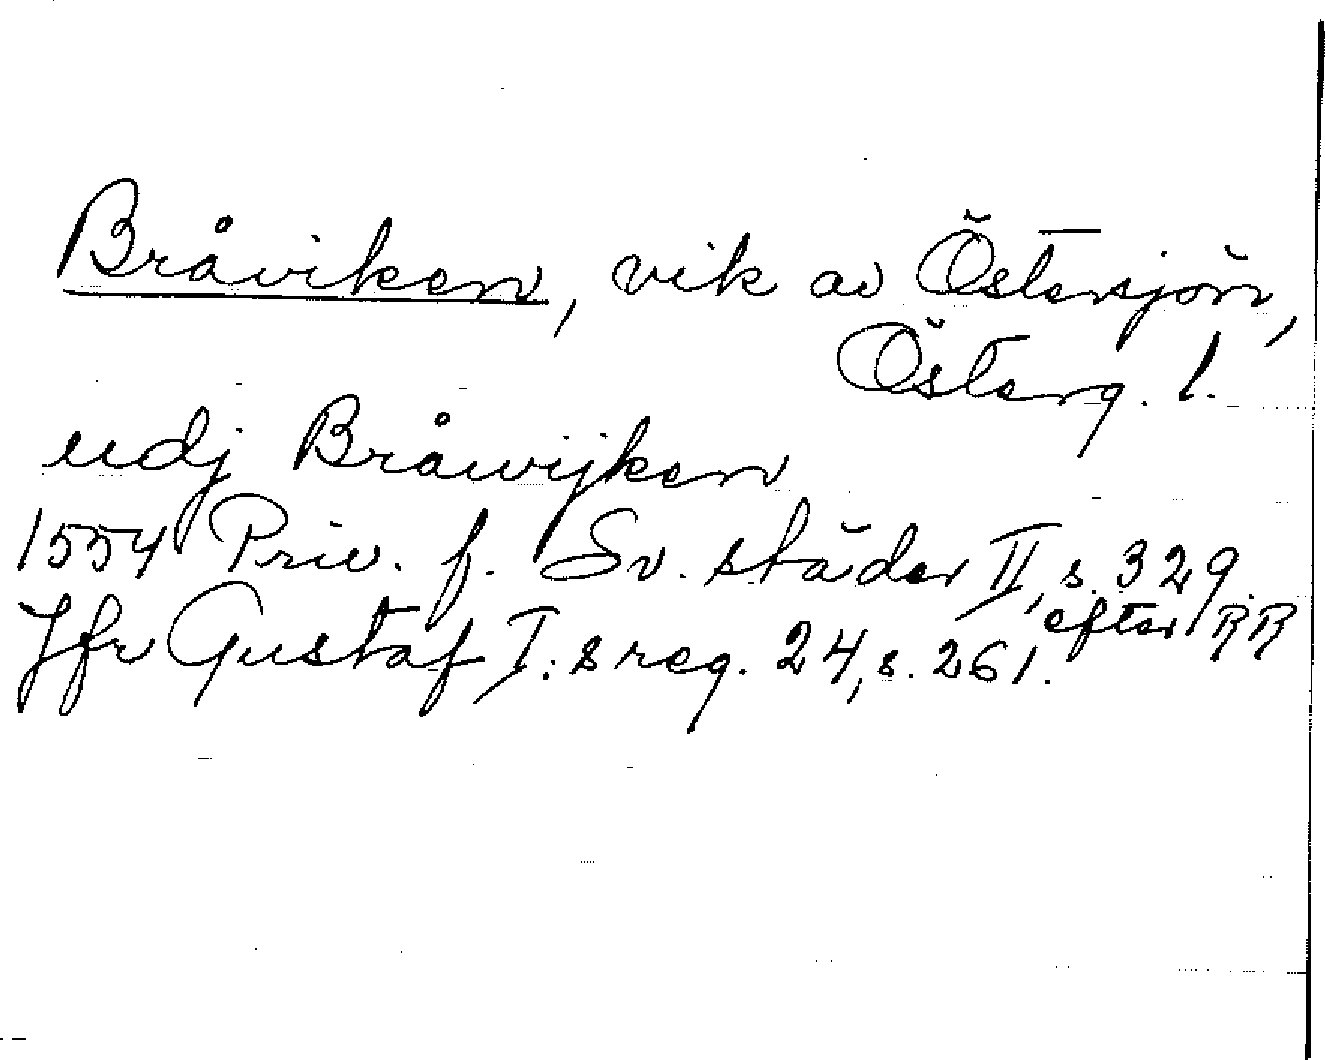 Bråviken, vik av Östersjön,
Österg. l.
udj Bråwijken
1554 Priv. f. Sv. städer II, s. 329
efter RR
Jfr Gustaf I:s reg. 24, s. 261.